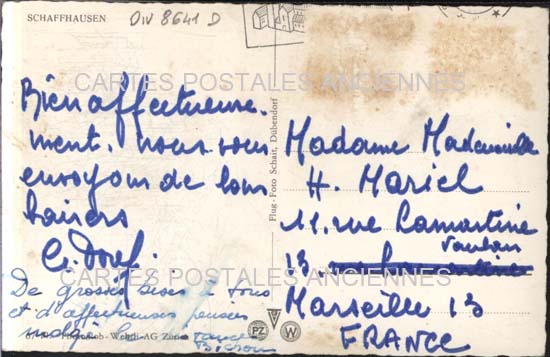 SCHAFFHAUSEN
DIV 8641 D
CARTES POSTALES ANCIENNES
Bien affectueuse-
ment, nous vous
envoyons de bons
baisers
De grosses bises à tous
et d'affectueuses pensées
Flug-Foto Schair, Dübendorf
Madame Mademoiselle
H. Mariel
11. rue Lamartine
Vauban
13.
Marseille 13
FRANCE
CARTES POSTALES ANCIENNES
-AG Zür
PZ
W